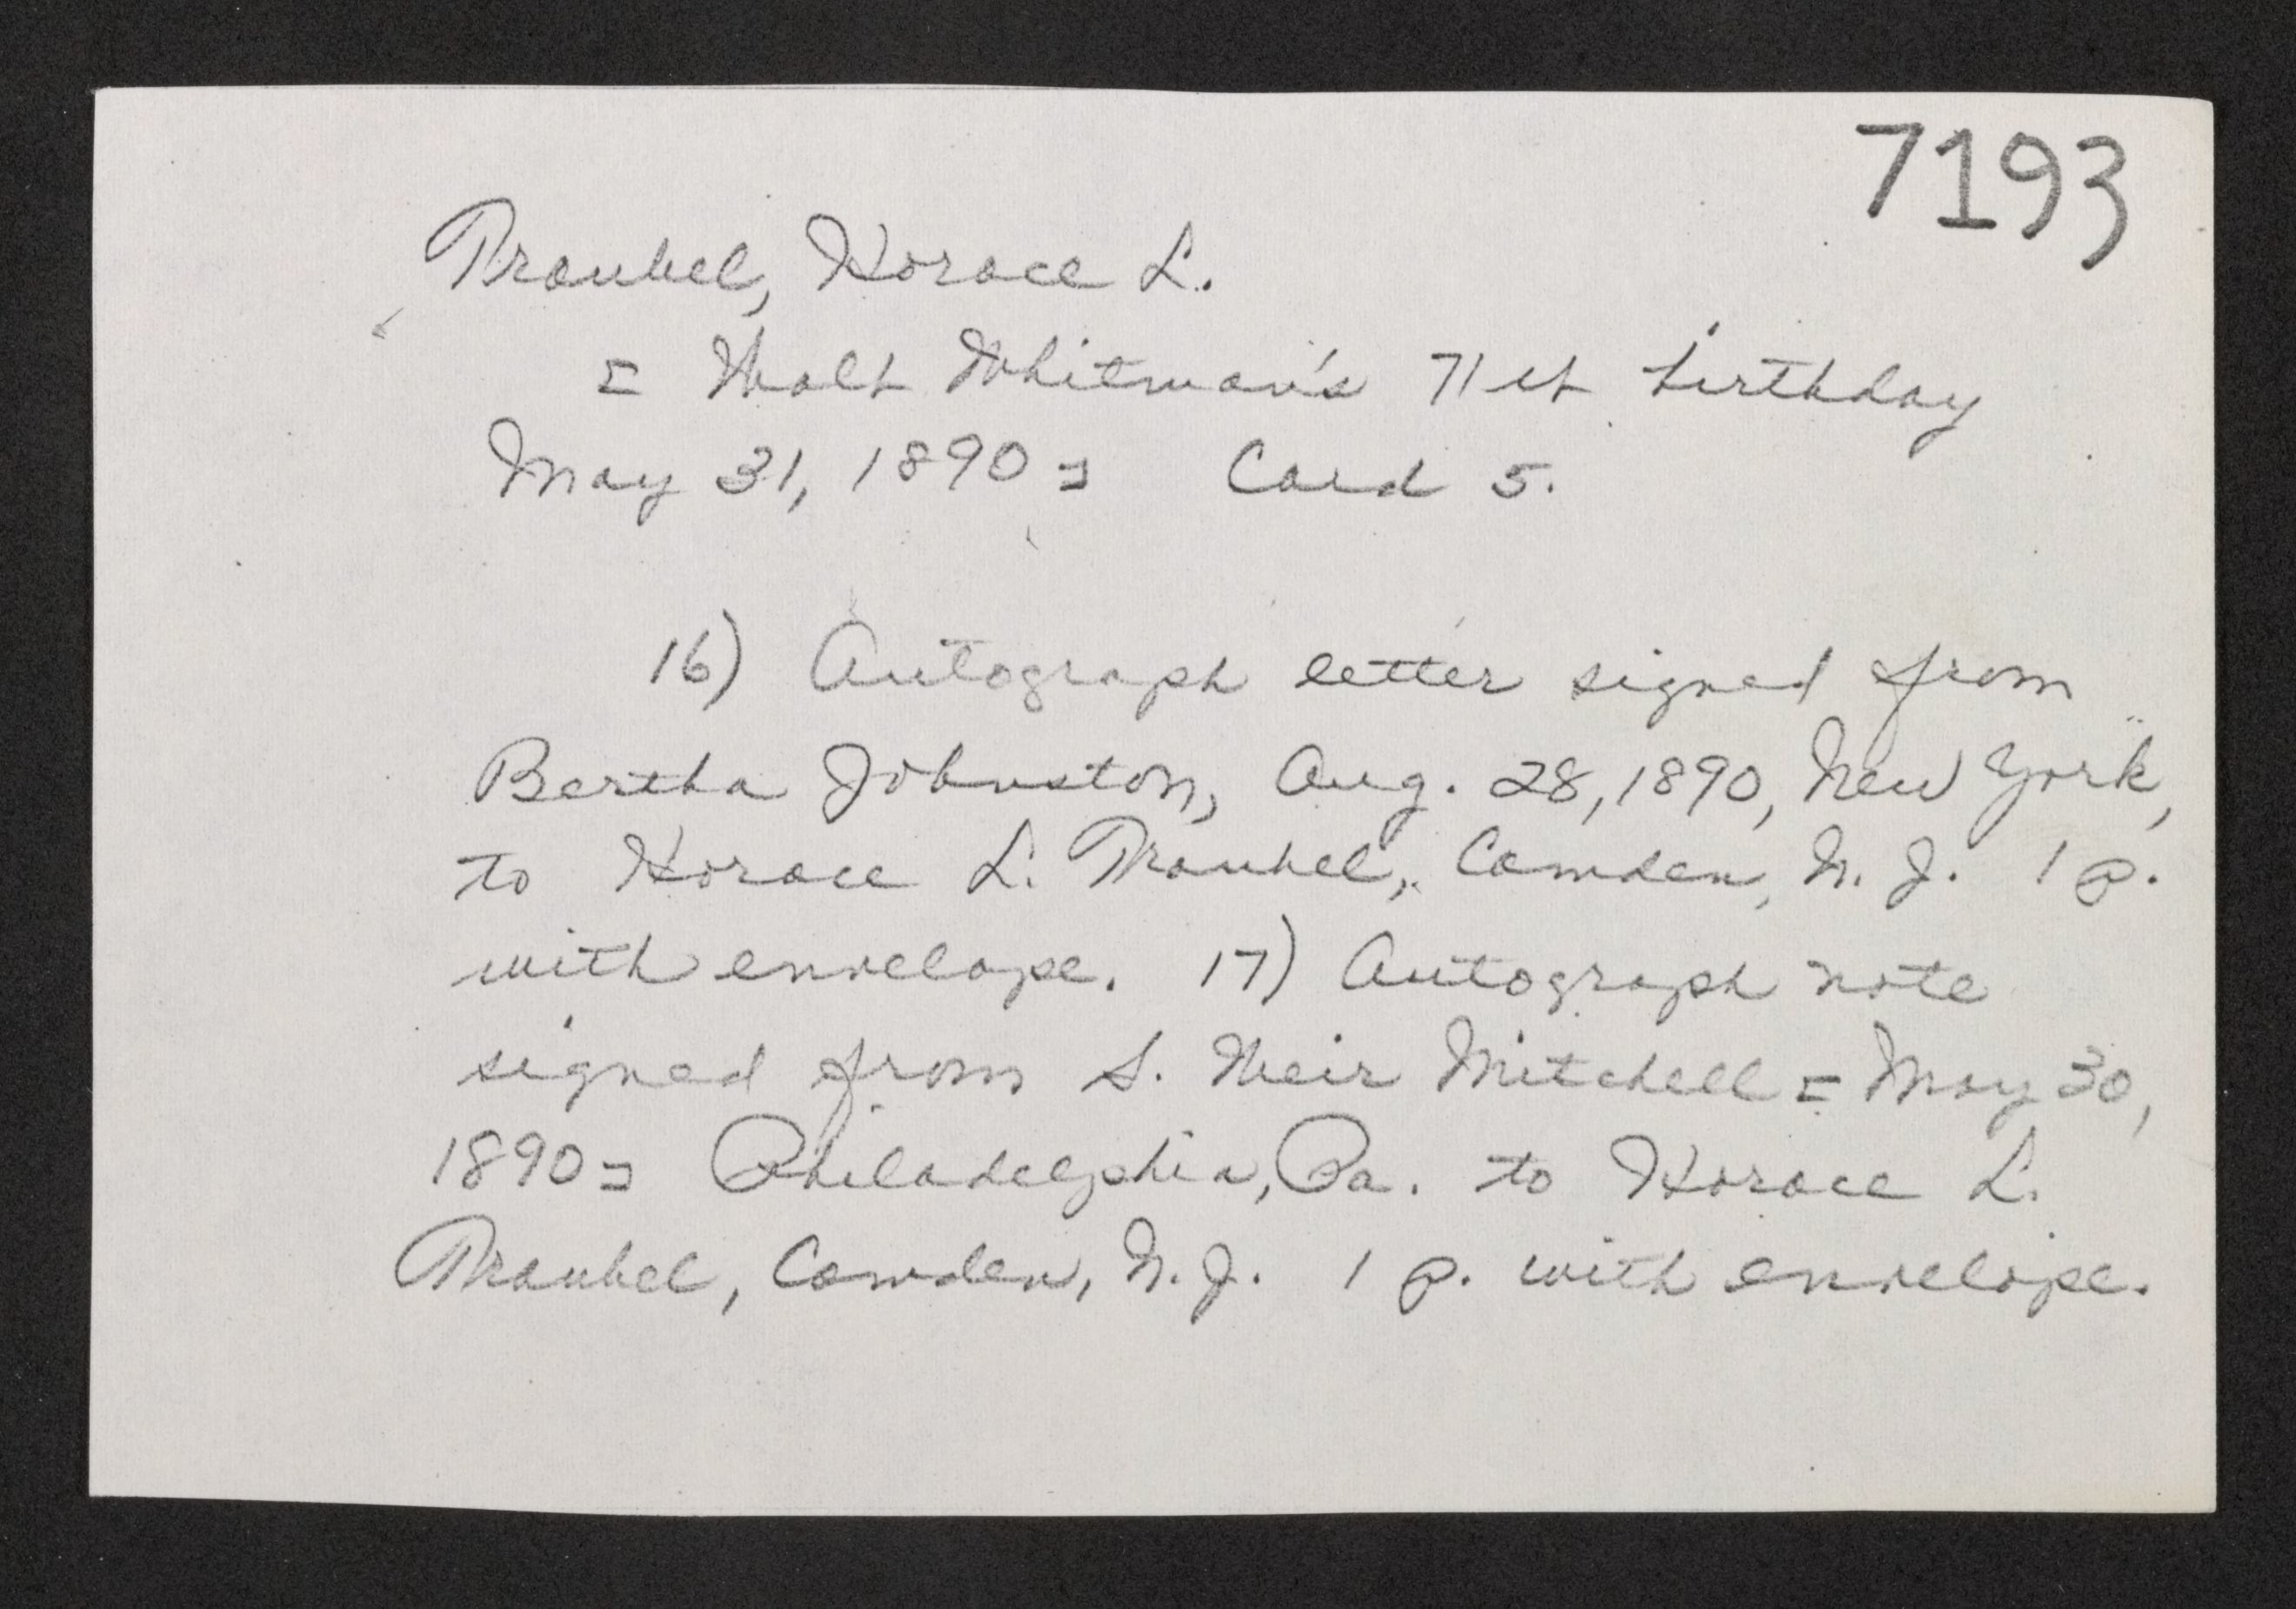 7193
Traubel, Horace L.
[Walt Whitman's 71st birthday
May 31, 1890] Card 5.
16) Autograph letter signed from
Bertha Johnston, Aug. 28, 1890, New York,
to Horace L. Traubel, Camden, N. J. 1 p.
with envelope. 17) Autograph note
signed from S. Weir Mitchell [May 30,
1890] Philadelphia, Pa. to Horace L.
Traubel, Camden, N.J. 1 p. with envelope.